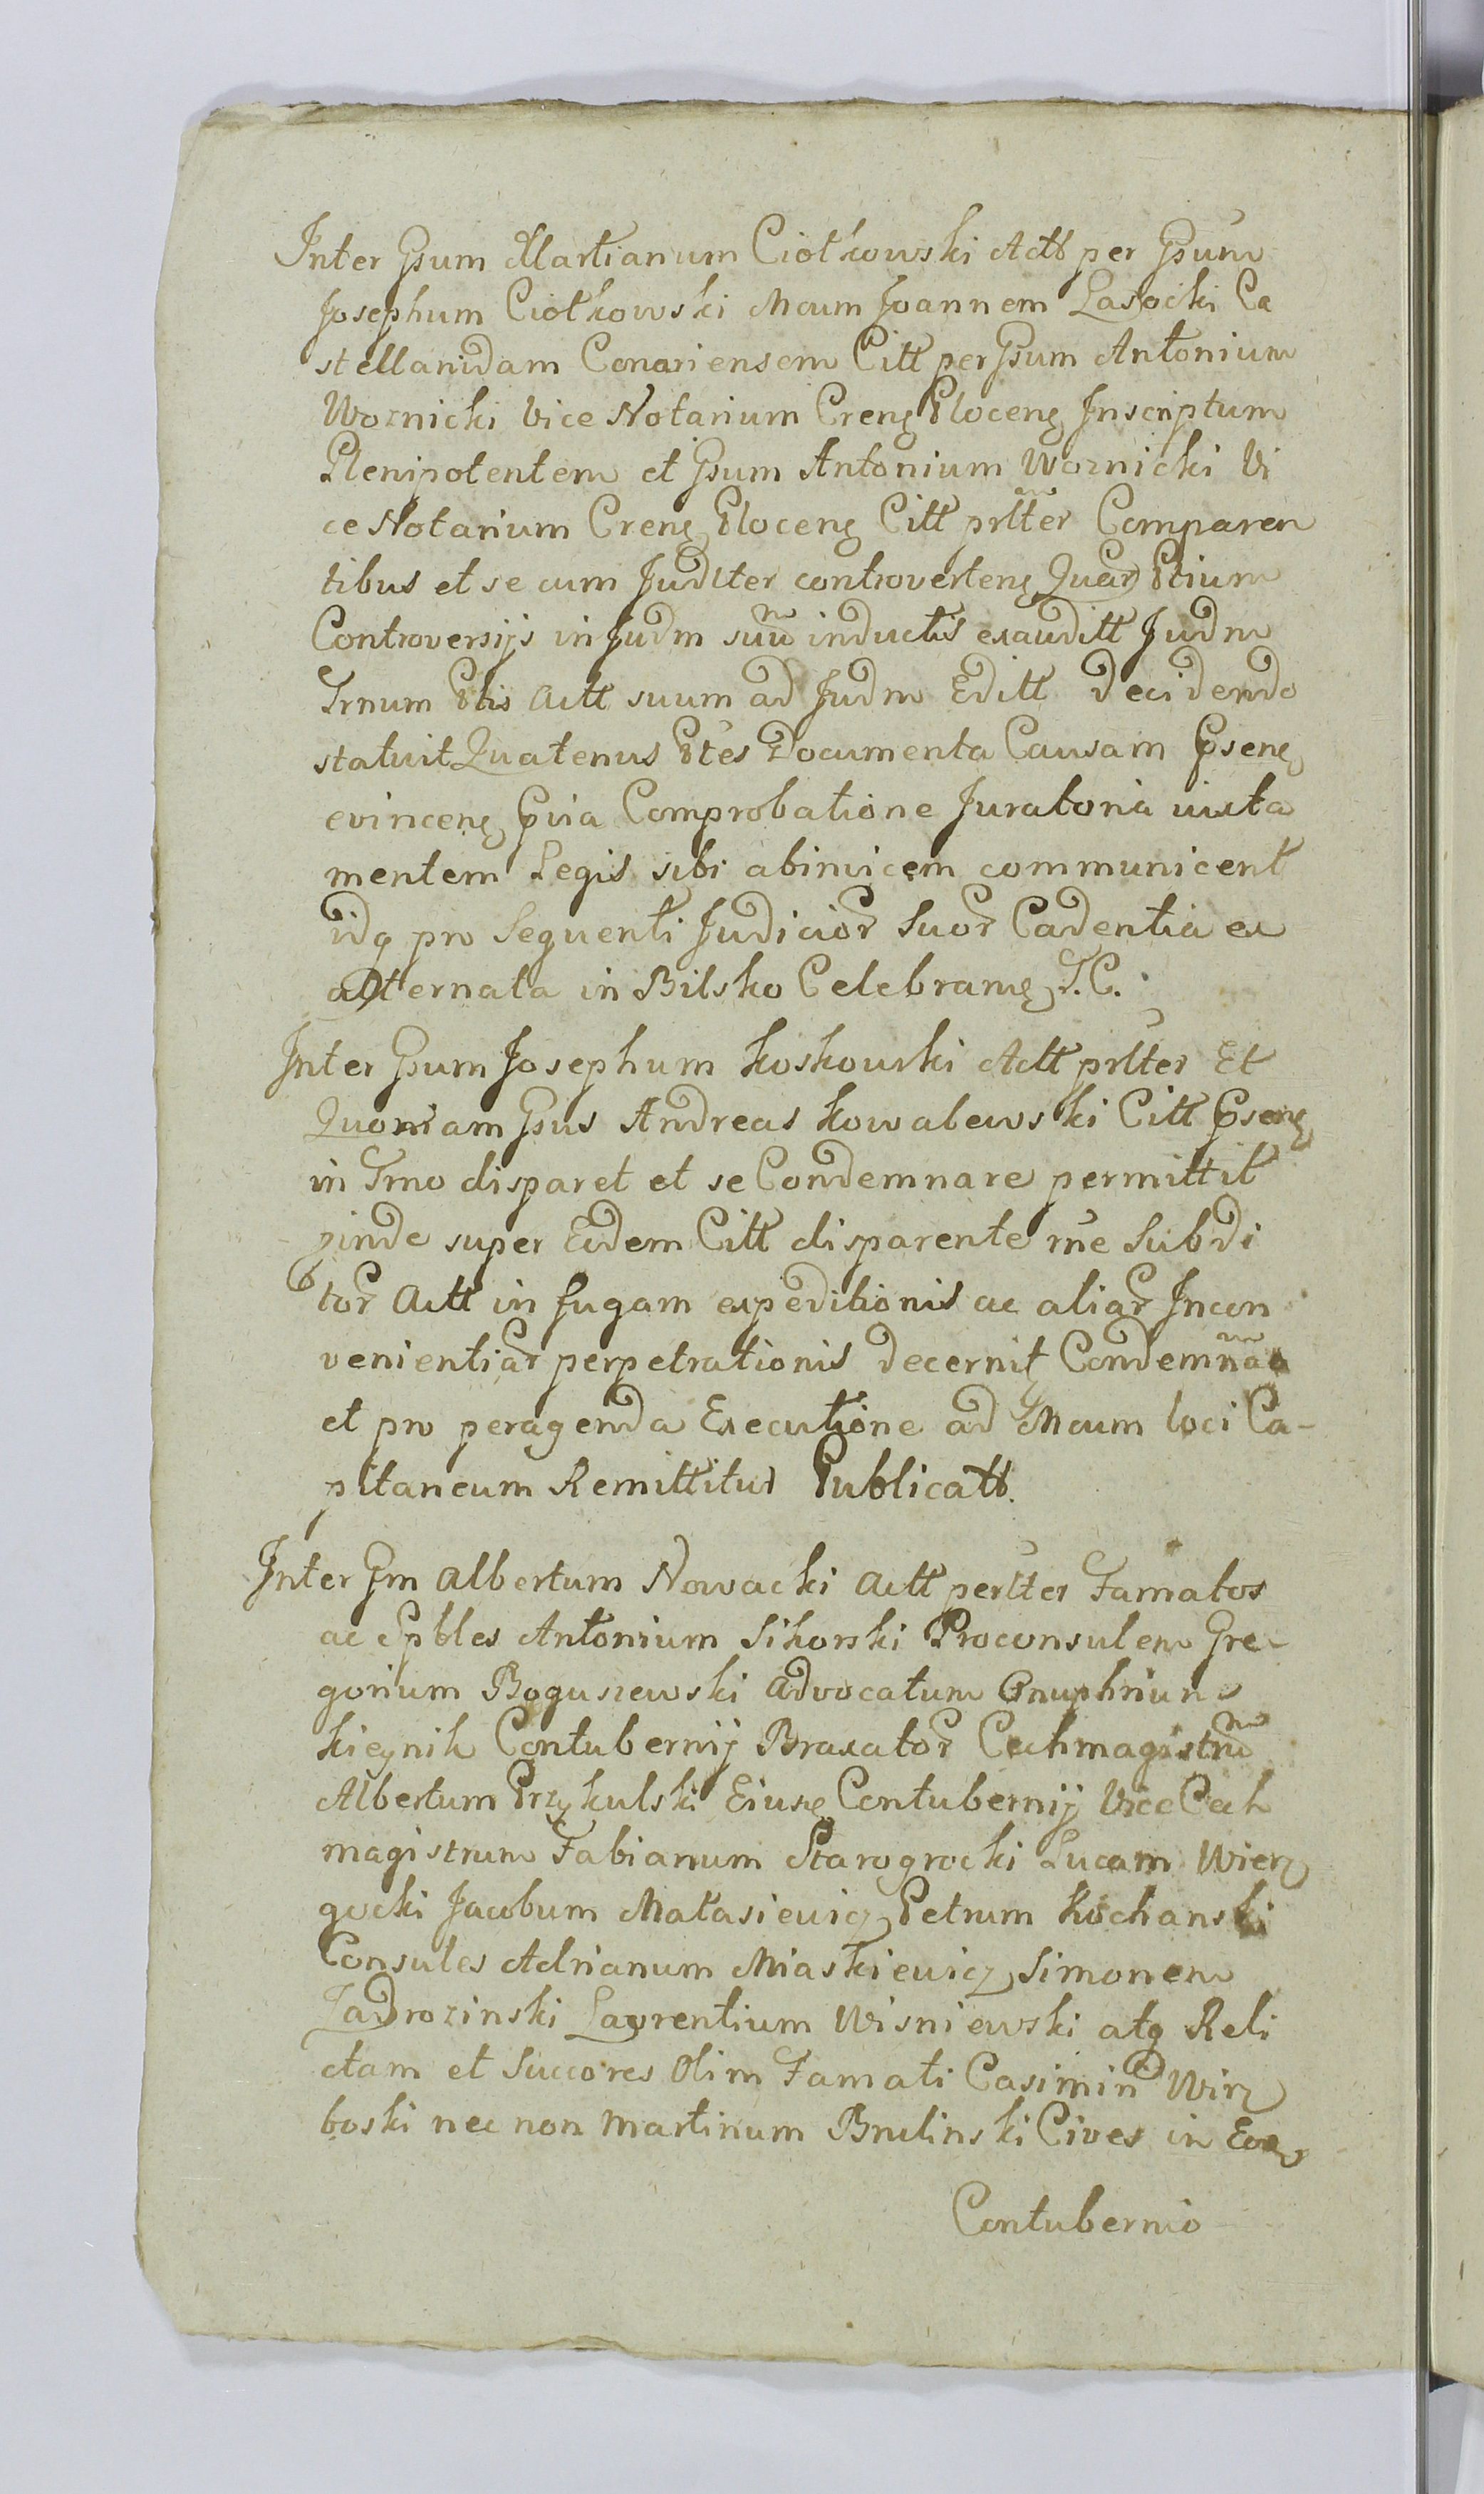 Inter Gsum Martianum Ciołkowski Actt per Gsum
Josephum Ciołkowski Mcum Joannem Lasocki Ca
stellanidam Conariensem Citt per Gsum Antonium
Woznicki Vice Notarium Crens Plocens Inscriptum
Plenipotentem et Gsum Antonium Woznicki Vi
ce Notarium Crens Plocens Citt prltter Comparen
tibus et se cum Judlter controvertens Quar Ptium
Controversijs in Judm suũ inductis exauditt Judm
Trnum Ptis Actt suum ad Judm Editt decidendo
statuit Quatenus Ptes Documenta Causam Psens
evincens Pvia Comprobatione Juratoria iuxta
mentem Legis sibi abinvicem communicent
idq pro Sequenti Judicior Suor Cadentia ex
alternata in Bilsko Celebrans T.C.
Inter Gsum Josephum Koskowski Actt prltter Et
Quoniam Gsus Andreas Kowalewski Citt Psens
in Tmo disparet et se Condemnare permittit
pinde super Eodem Citt disparente rne Subdi
tor Actt in fugam expeditionis ac aliar Incon
venientiar perpetrationis decernit Condemnãa
et pro peragenda Executione ad Mcum loci Ca-
pitaneum Remittitur Publicatt.
Inter Gm Albertum Nowacki Actt perltter Famatos
ac Spbles Antonium Sikorski Proconsulem Gre-
gorium Boguszewski Advocatum Onuphrium
Kieynik Contubernij Braxator Cechmagistrũ
Albertum Przykulski Eiusę Contubernij Vice Cech
magistrum Fabianum Starogrocki Lucam Wierz
gocki Jacobum Matasiewicz Petrum Kochanski
Consules Adrianum Miaskiewicz Simonem
Zadrozinski Laurentium Wisniewski atq Reli
ctam et Succores Olim Famati Casimiri Wirz
boski nec non Martinum Brulinski Cives in Eod
Contubernio